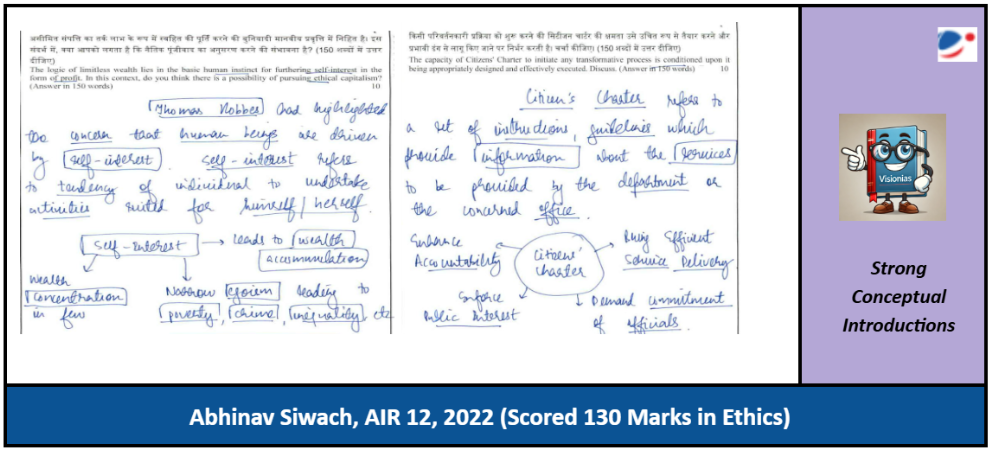 असीमित संपत्ति का तर्क लाभ के रूप में स्वहित की पूर्ति करने की बुनियादी मानवीय प्रवृत्ति में निहित है। इस
संदर्भ में, क्या आपको लगता है कि नैतिक पूंजीवाद का अनुसरण करने की संभावना है? (150 शब्दों में उत्तर
दीजिए)
The logic of limitless wealth lies in the basic human instinct for furthering self-interest in the
form of profit. In this context, do you think there is a possibility of pursuing ethical capitalism?
(Answer in 150 words) 10
Thomas Hobbes had highlighted
the concern that human beings are driven
by self-interest. self-interest refers
to tendency of individual to undertake
activities suited for himself/herself.
Self-interest → leads to wealth
accumulation
Wealth
concentration
in few
Narrow egoism leading to
poverty, crime, inequality, etc
किसी परिवर्तनकारी प्रक्रिया को शुरू करने की सिटीजन चार्टर की क्षमता उसे उचित रूप से तैयार करने और
प्रभावी ढंग से लागू किए जाने पर निर्भर करती है। चर्चा कीजिए। (150 शब्दों में उत्तर दीजिए)
The capacity of Citizens' Charter to initiate any transformative process is conditioned upon it
being appropriately designed and effectively executed. Discuss. (Answer in 150 words) 10
Citizen's Charter refers to
a set of instructions, guidelines which
provide information about the services
to be provided by the department or
the concerned office.
Enhance
Accountability
Citizens'
Charter
Bring Efficient
Service Delivery
Enforce
Public Interest
Demand commitment
of officials.
Visionias
Strong
Conceptual
Introductions
Abhinav Siwach, AIR 12, 2022 (Scored 130 Marks in Ethics)